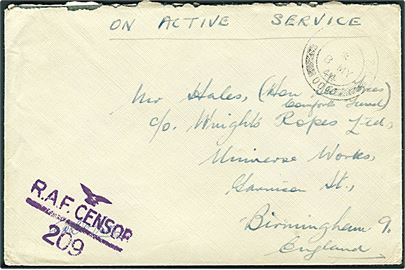 ON ACTIVE SERVICE
8 MY
Mr Hales, (Hon
Comforts Fund)
c/o. Wrights Ropes Ltd,
Universe Works,
Garrison St.,
Birmingham 9.
England
R.A.F. CENSOR
209